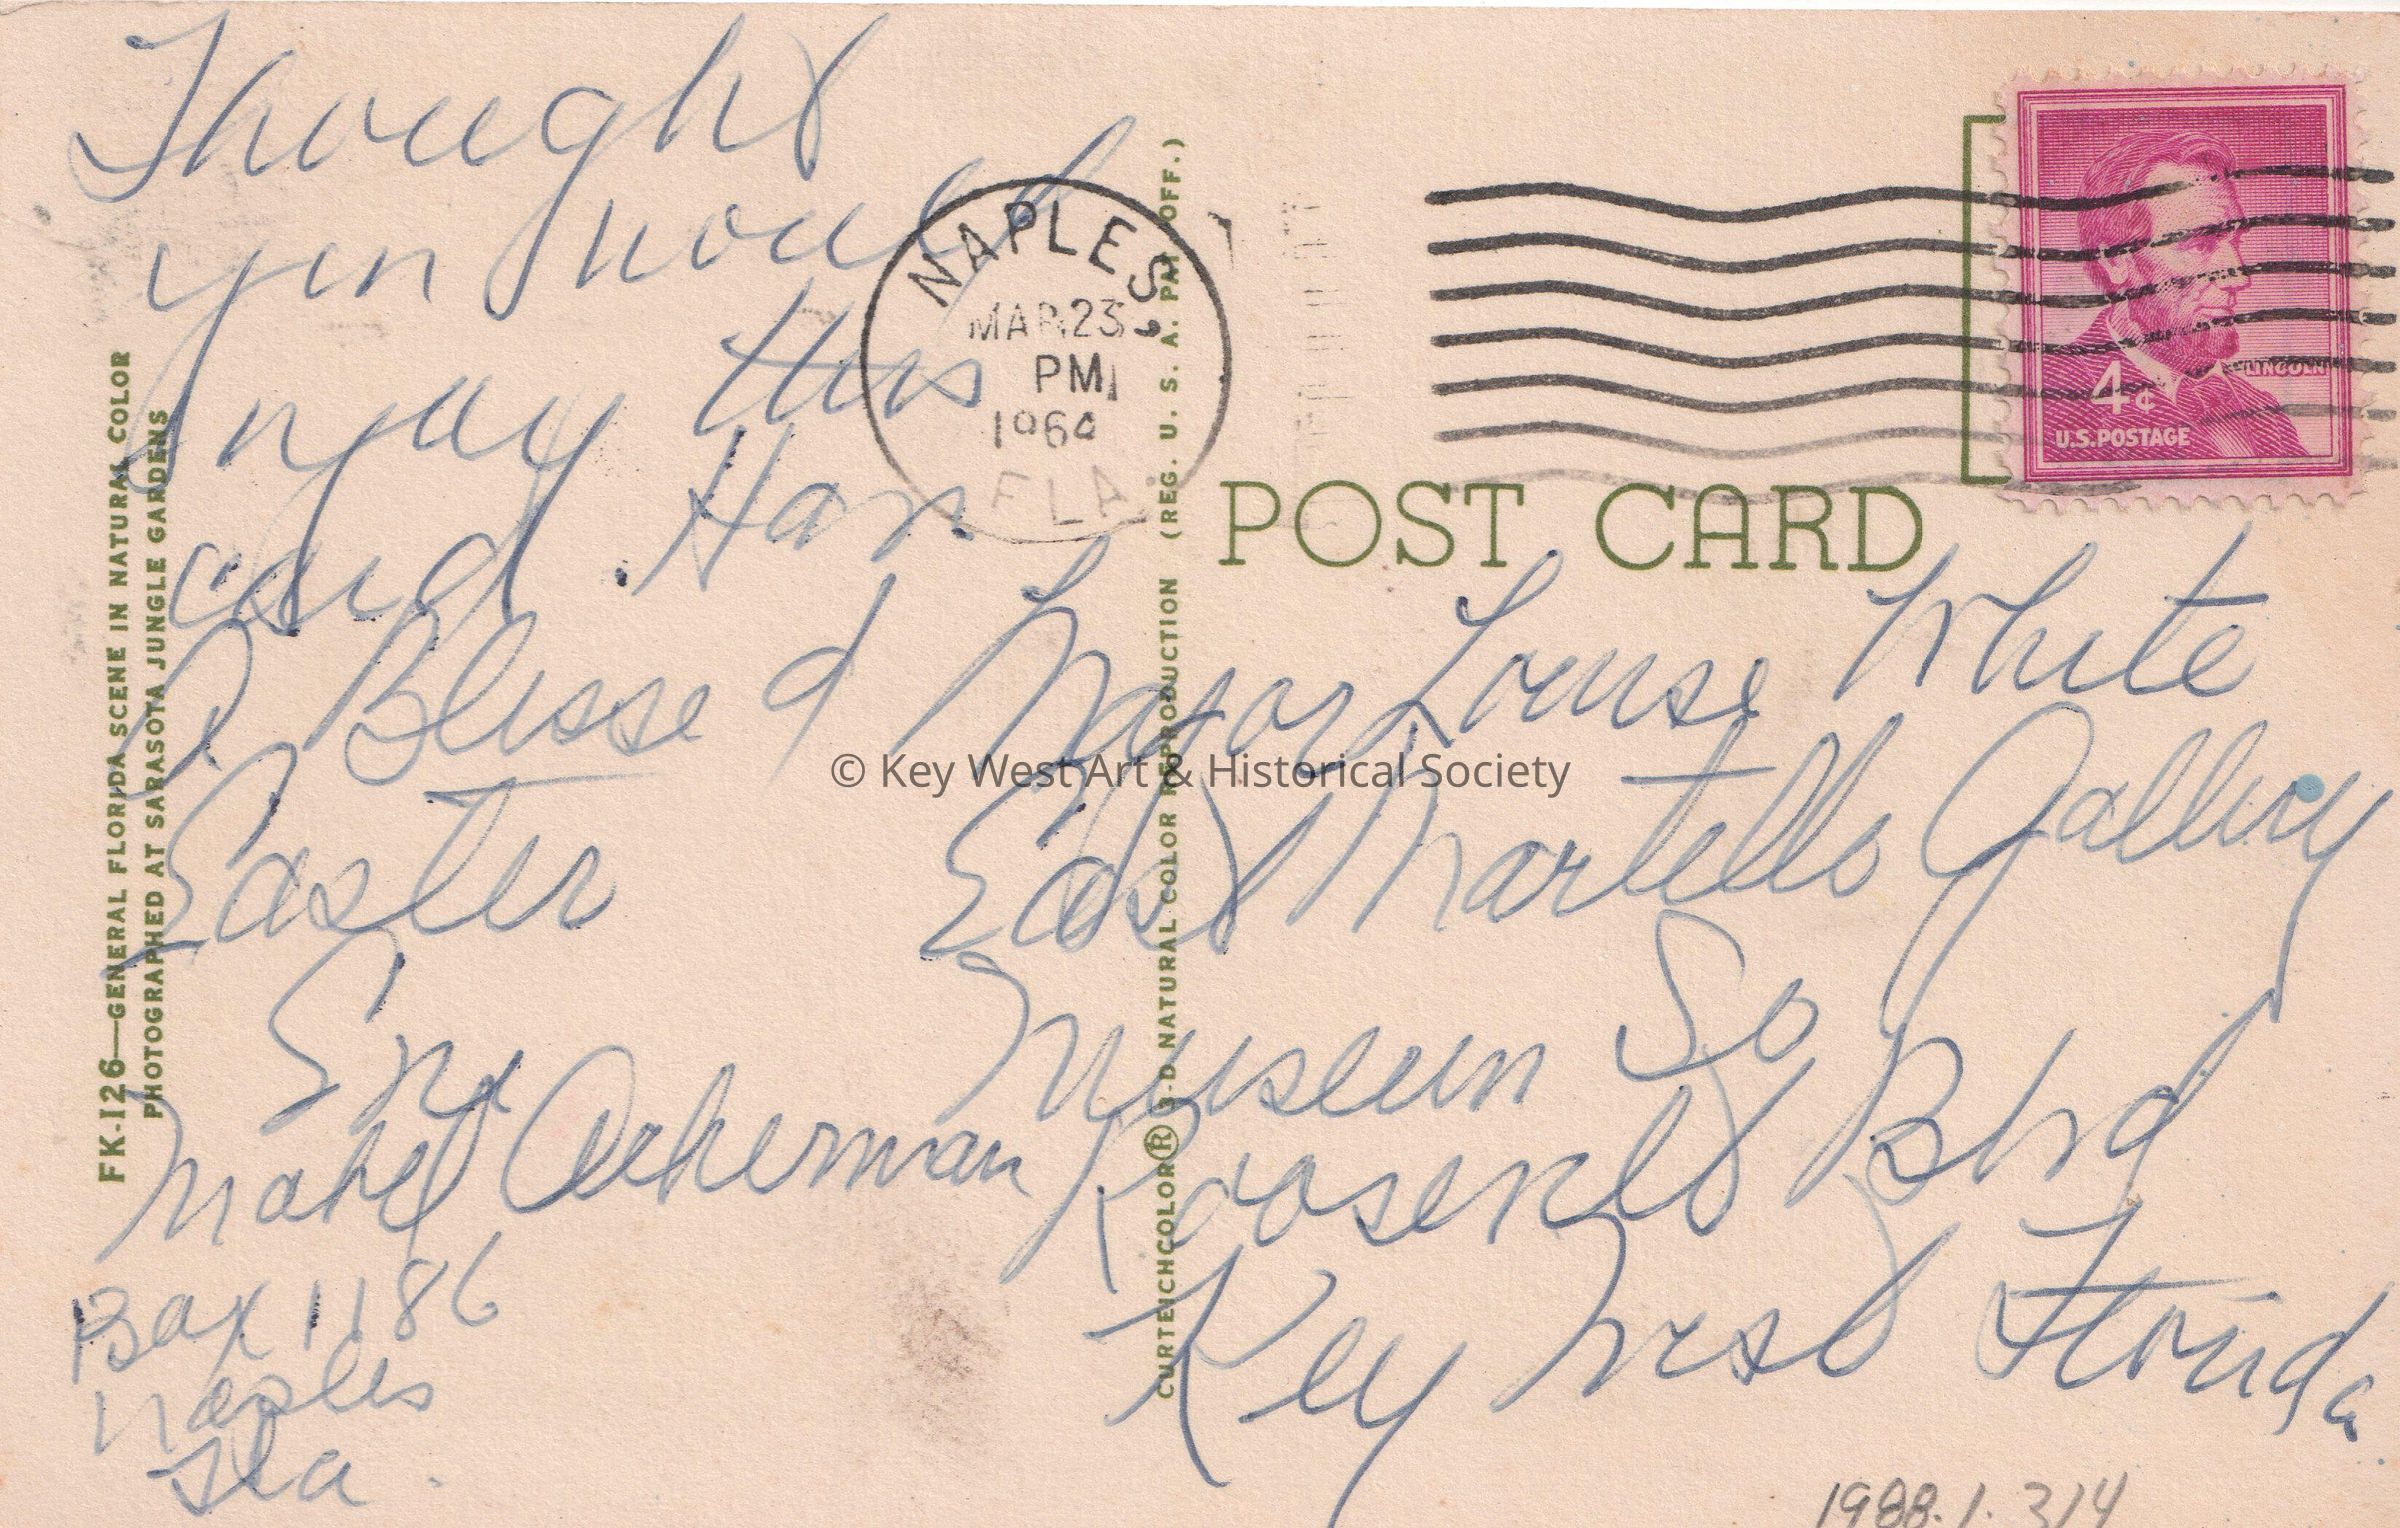 Thought
you would
enjoy this
card. Han
A Blessed
Easter
Mabel Ackerman
Box 1186
Naples
Fla.
FK-126—GENERAL FLORIDA SCENE IN NATURAL COLOR
PHOTOGRAPHED AT SARASOTA JUNGLE GARDENS
NAPLES,
MAR 23
PM
1964
FLA.
CURTEICHCOLOR® 3-D NATURAL COLOR REPRODUCTION (REG. U. S. A. PAT. OFF.)
POST CARD
LINCOLN
4¢
U.S. POSTAGE
Major Louise White
East Martello Gallery
Museum So
Roosevelt Blvd
Key West Florida
© Key West Art & Historical Society
1988.1.314